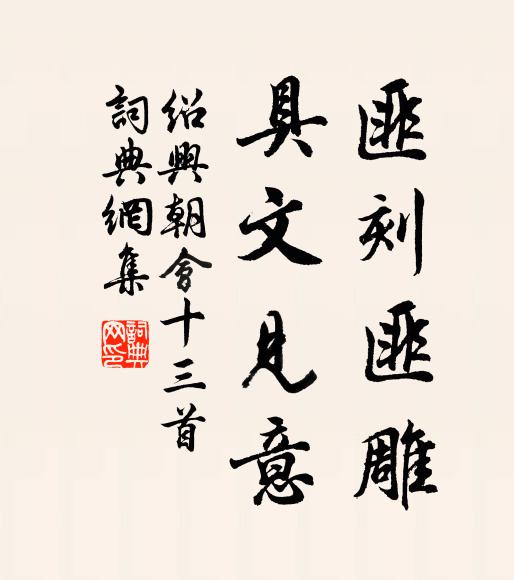 匪刻匪雕
具文見意
紹興朝會十三首
詞典網集
詞典網印